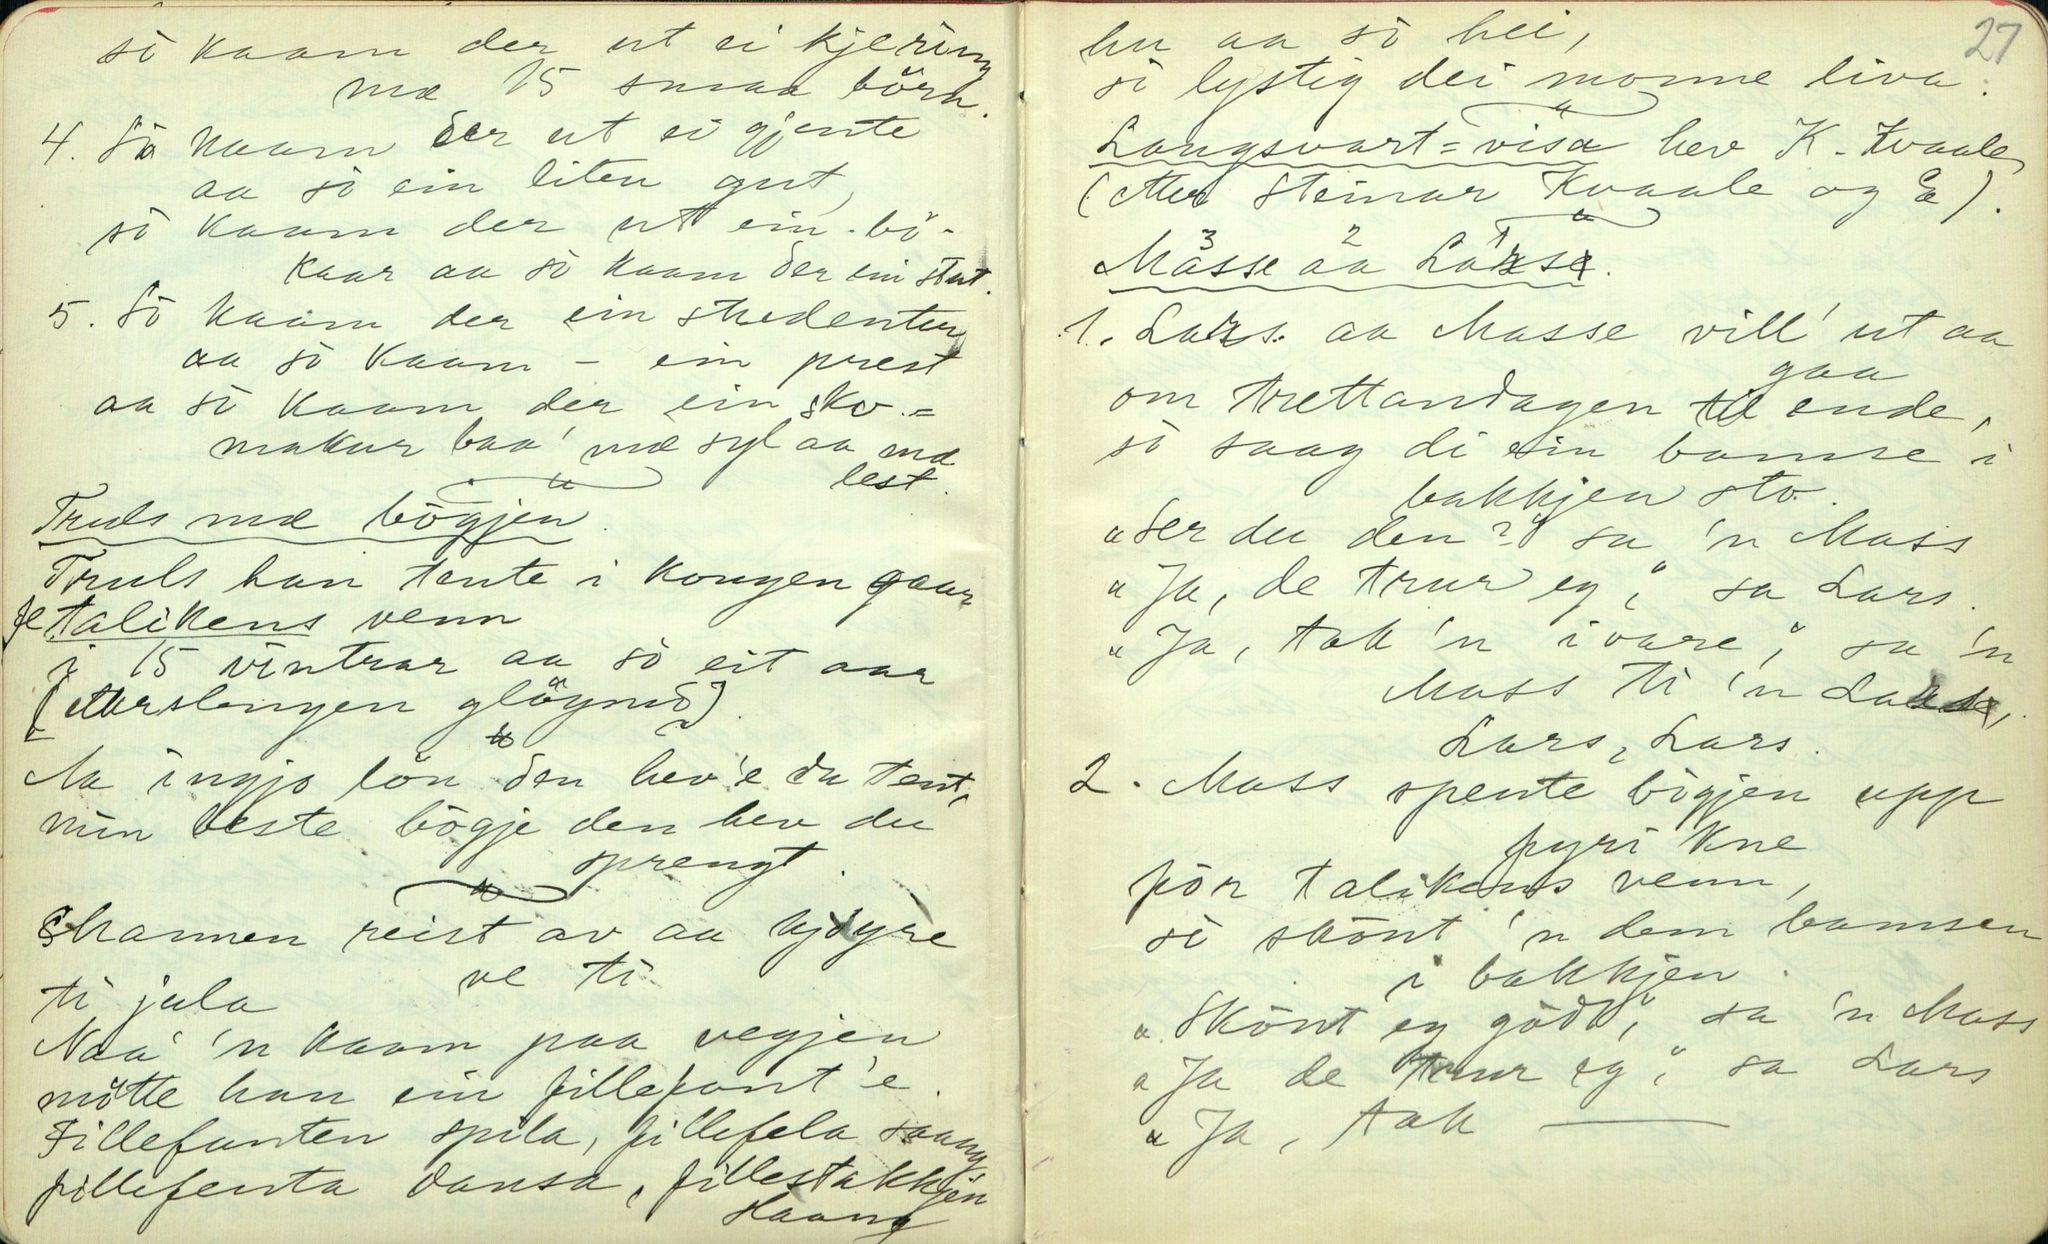 sö kaam der ut ei kjering
mæ 15 smaa börn.
4. Sö kaam der ut ei gjente
aa sö ein liten gut,
sö kaam der ut ein bö-
kaar aa sö kaam der ein stut.
5. Sö kaam der ein studentur
aa sö kaam – ein prest
aa sö kaam der ein sko-=
makur baa' mæ syl aa mæ
lest.
Truls mæ bögjen.
Truls han tente i kongen gaar
fe talikens venn
i 15 vintrar aa sö eit aar
[etterslengen glöymd]
Aa ingjo lön den hev'e du tent,
min beste bögje den hev du
sprengt.
Mannen reist av aa kjöyre
ve ti
ti jula
Naa 'n kaam paa vegjen
mötte han ein fillefant'e.
Fillefanten spila, fillefela saang
fillefenta dansa, fillestakkjen
slaang
27
hu aa sö hei,
sö lystig dei monne liva.
Langsvart=visa hev K. Kvaale
(etter Steinar Kvaale og E).
3 2 1
Masse aa Larse.
1. Lars aa Masse vill' ut aa
gaa
om trettandagen til ende,
sö saag di ein bamse i
bakkjen sto.
"Ser du den?" sa 'n Mass
"Ja, de trur eg," sa Lars.
"Ja, tak 'n i vare," sa 'n
Mass ti 'n Larse,
Lars, Lars.
2. Mass spente bögjen upp
fyri kne
för talikens venn,
sö skönt 'n dem bamsen
i bakkjen.
"Skönt eg gödt," sa 'n Mass
"Ja de trur eg," sa Lars
"Ja, tak ——